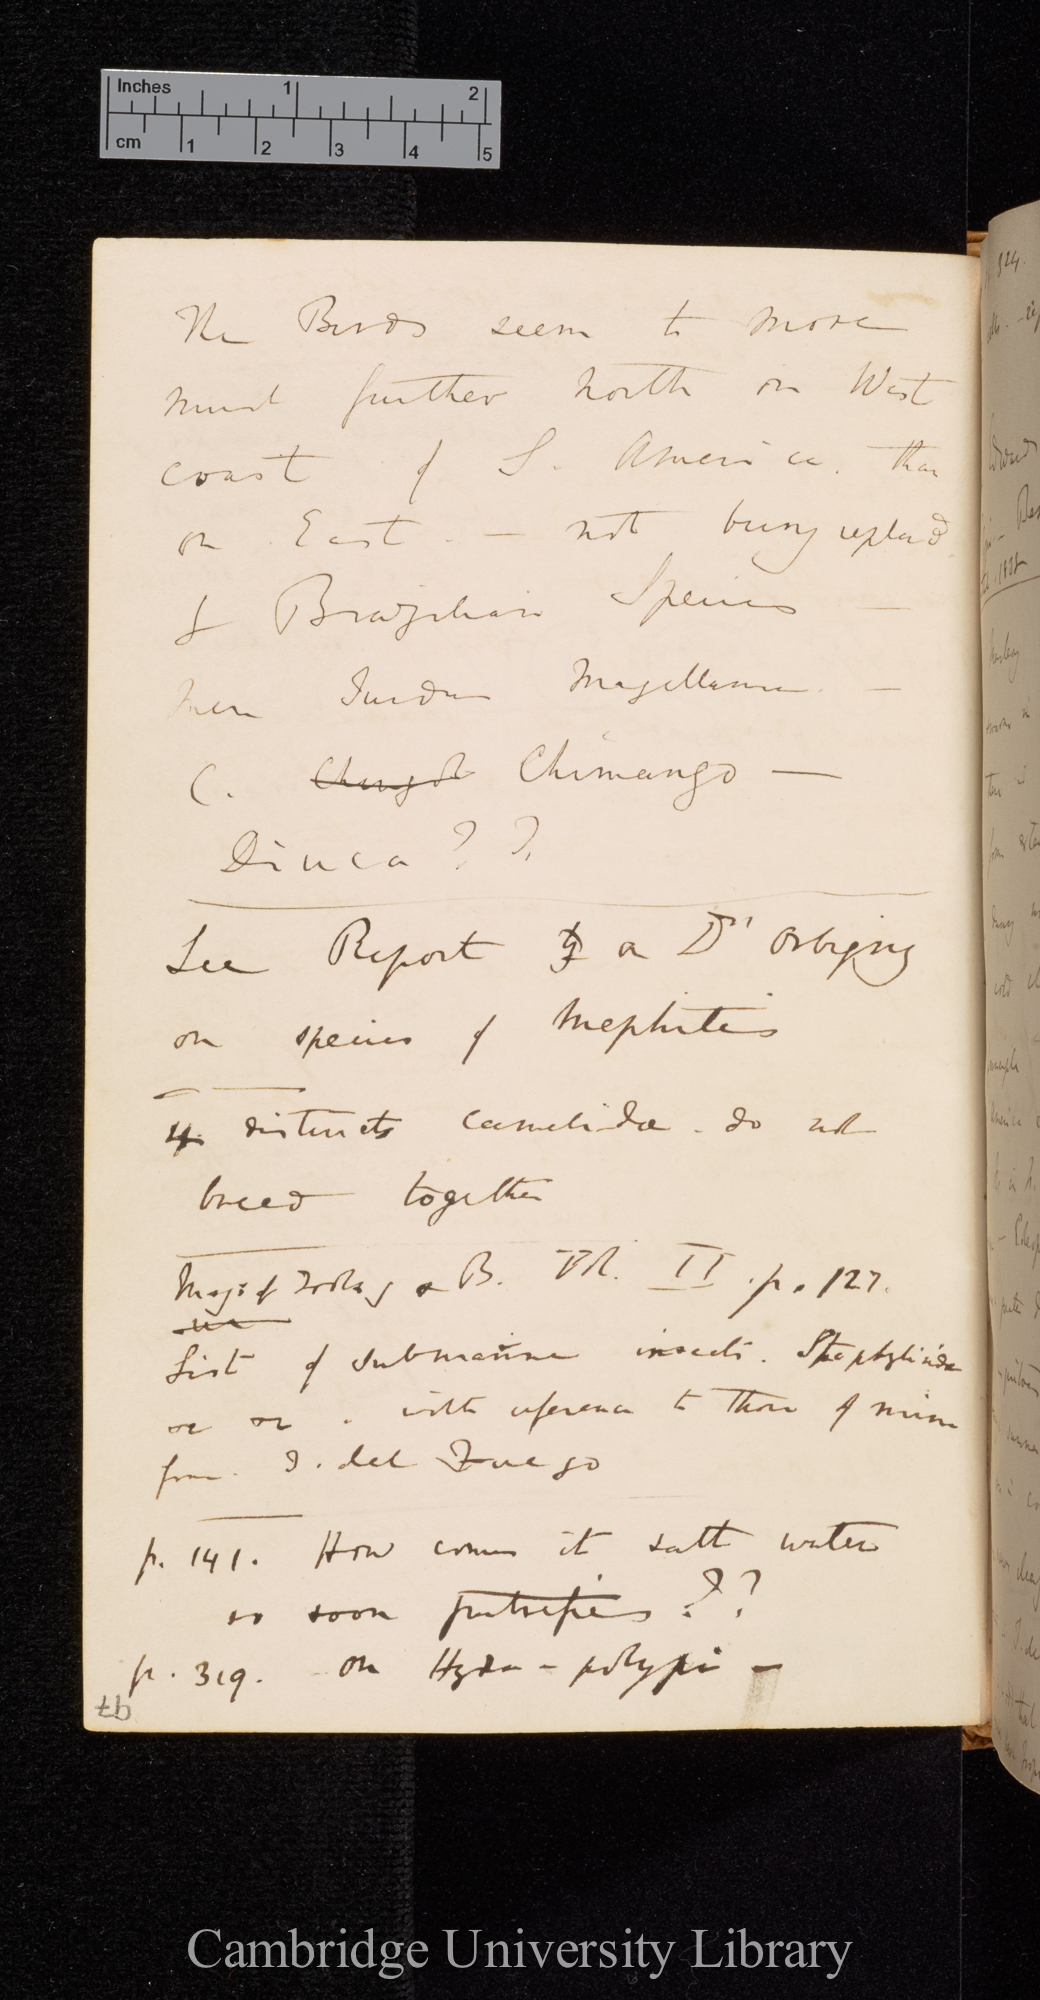 Inches 1 2
cm 1 2 3 4 5
The Birds seem to move
much further north on West
coast of S. America. than
on East. — not being replaced
by Brazilian Species —
Turdus Magellanicus —
C. Chimango —
Diuca ? ?
See Report on D'Orbigny
on species of Mephitis
4 distincts camelidae do not
breed together
Mag: of Zoology & B. Vol. II. p. 127.
List of submarine insects. Staphylinidae
&c &c. with reference to those of mine
from T. del Fuego
p. 141. How comes it salt water
so soon putrifies ??
p. 319. on Hydra-polypi —
97
Cambridge University Library